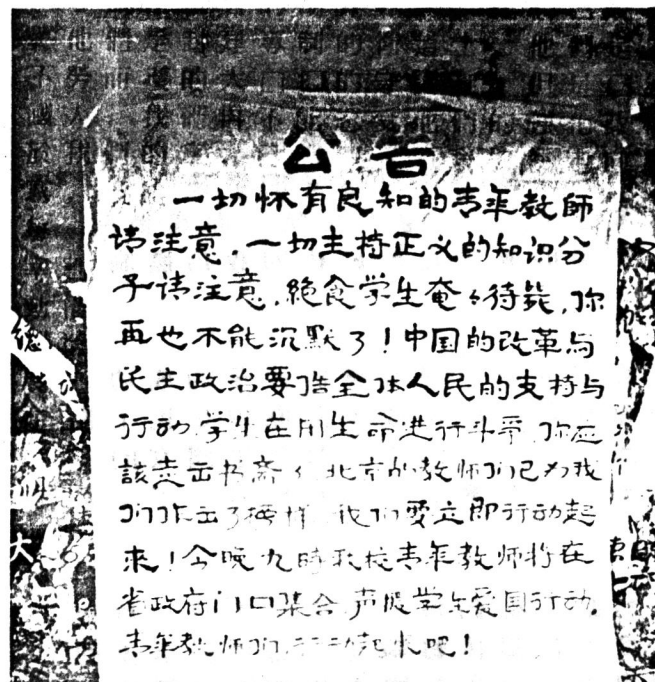 公告
一切怀有良知的青年教師
请注意,一切主持正义的知识分
子请注意,絶食学生奄々待毙,你
再也不能沉默了!中国的改革与
民主政治要借全体人民的支持与
行动,学生在用生命进行斗争,你应
該走击书斋 北京的教师们已为我
们作出了榜样 我们要立即行动起
来!今晚九時我校青年教师将在
省政府门口集合,声援学生爱国行动。
青年教师们,行动起来吧!